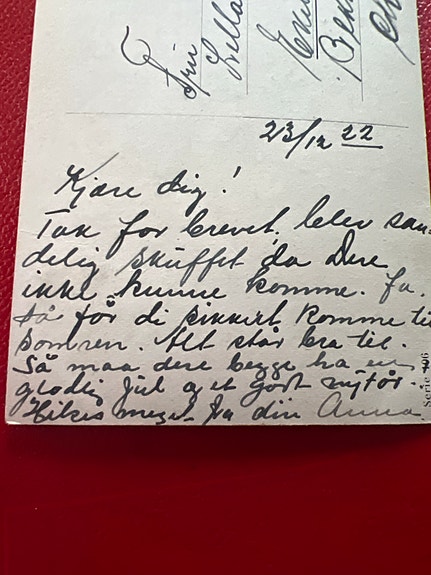 Fru
23/12 22
Kjære dig!
Tak for brevet, blev san-
delig skuffet da Dere
ikke kunne komme. Ja,
så får di sikkert komme til
somren. Alt står bra til.
Så maa dere begge ha en
glædig jul og et godt nytår.
Hilses meget fra din Anna
Serie 106